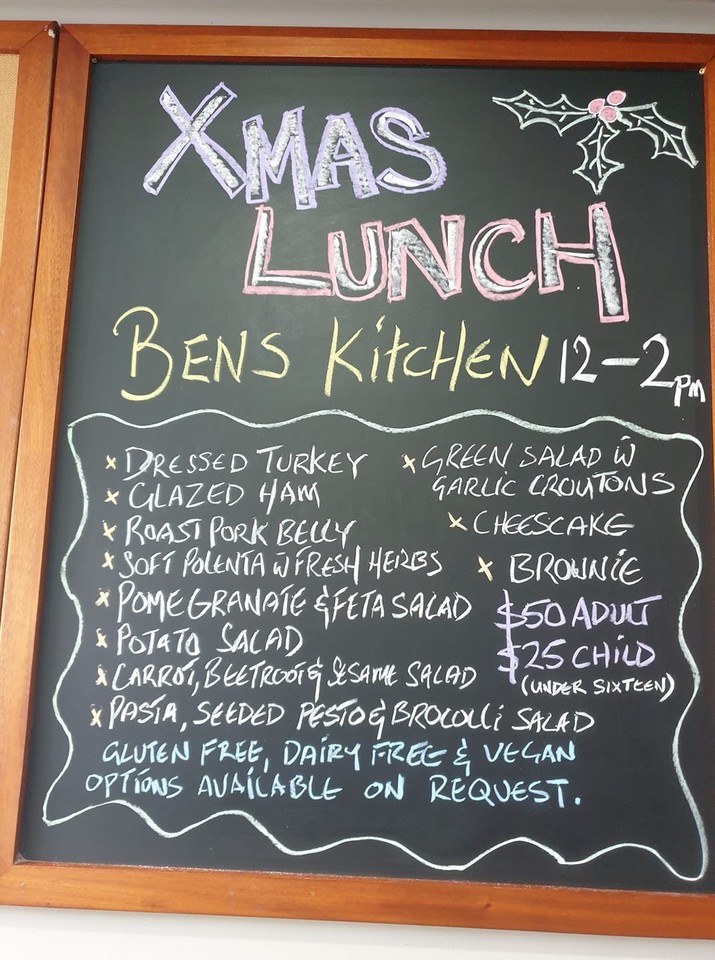 XMAS
LUNCH
BENS KITCHEN 12-2pm
x DRESSED TURKEY
x GLAZED HAM
x ROAST PORK BELLY
x SOFT POLENTA W FRESH HERBS
x POMEGRANATE & FETA SALAD
x POTATO SALAD
x CARROT, BEETROOT & SESAME SALAD
x PASTA, SEEDED PESTO & BROCOLLI SALAD
x GREEN SALAD W
GARLIC CROUTONS
x CHEESCAKE
x BROWNIE
$50 ADULT
$25 CHILD
(UNDER SIXTEEN)
GLUTEN FREE, DAIRY FREE & VEGAN
OPTIONS AVAILABLE ON REQUEST.